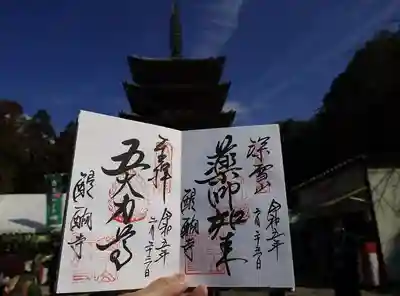 深雪山
薬師如来
醍醐寺
令和五年
二月二十三日
奉拝
五大力尊
醍醐寺
令和五年
二月二十三日